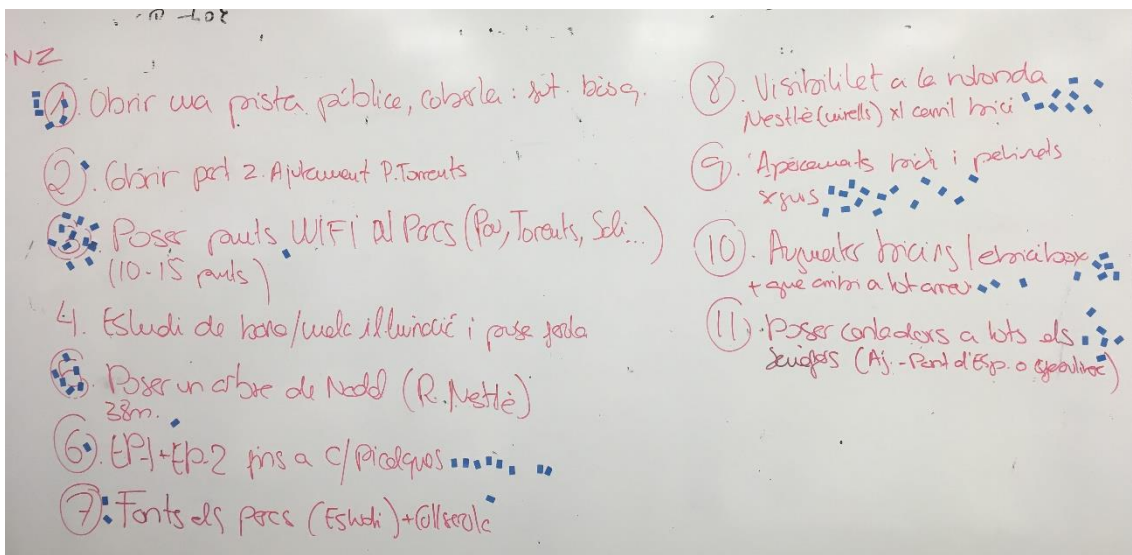 NZ
1. Obrir una pista pública, coberta: bàsq.
2. Cobrir part 2. Ajuntament P. Torrents
3. Poser punts WIFI al Parcs (Pou, Torrents, Soli...)
(10-15 punts)
4. Estudi de bona/mala il·luminació i
5. Poser un arbre de Nadal (R. Nestlé)
38m.
6. EP-1+EP-2 fins a c/Picalquers
7. Fonts els parcs (Estudi)+Collserola
8. Visibilitet a la rotonda
Nestlé (mirells) x1 carril bici
9. Aparcaments bici i patinets
10. Augmentar bicing/ebicibox
+ que arribi a tot arreu
11. Poser contadors a tots els
(Aj.-Pont d'Esp. o